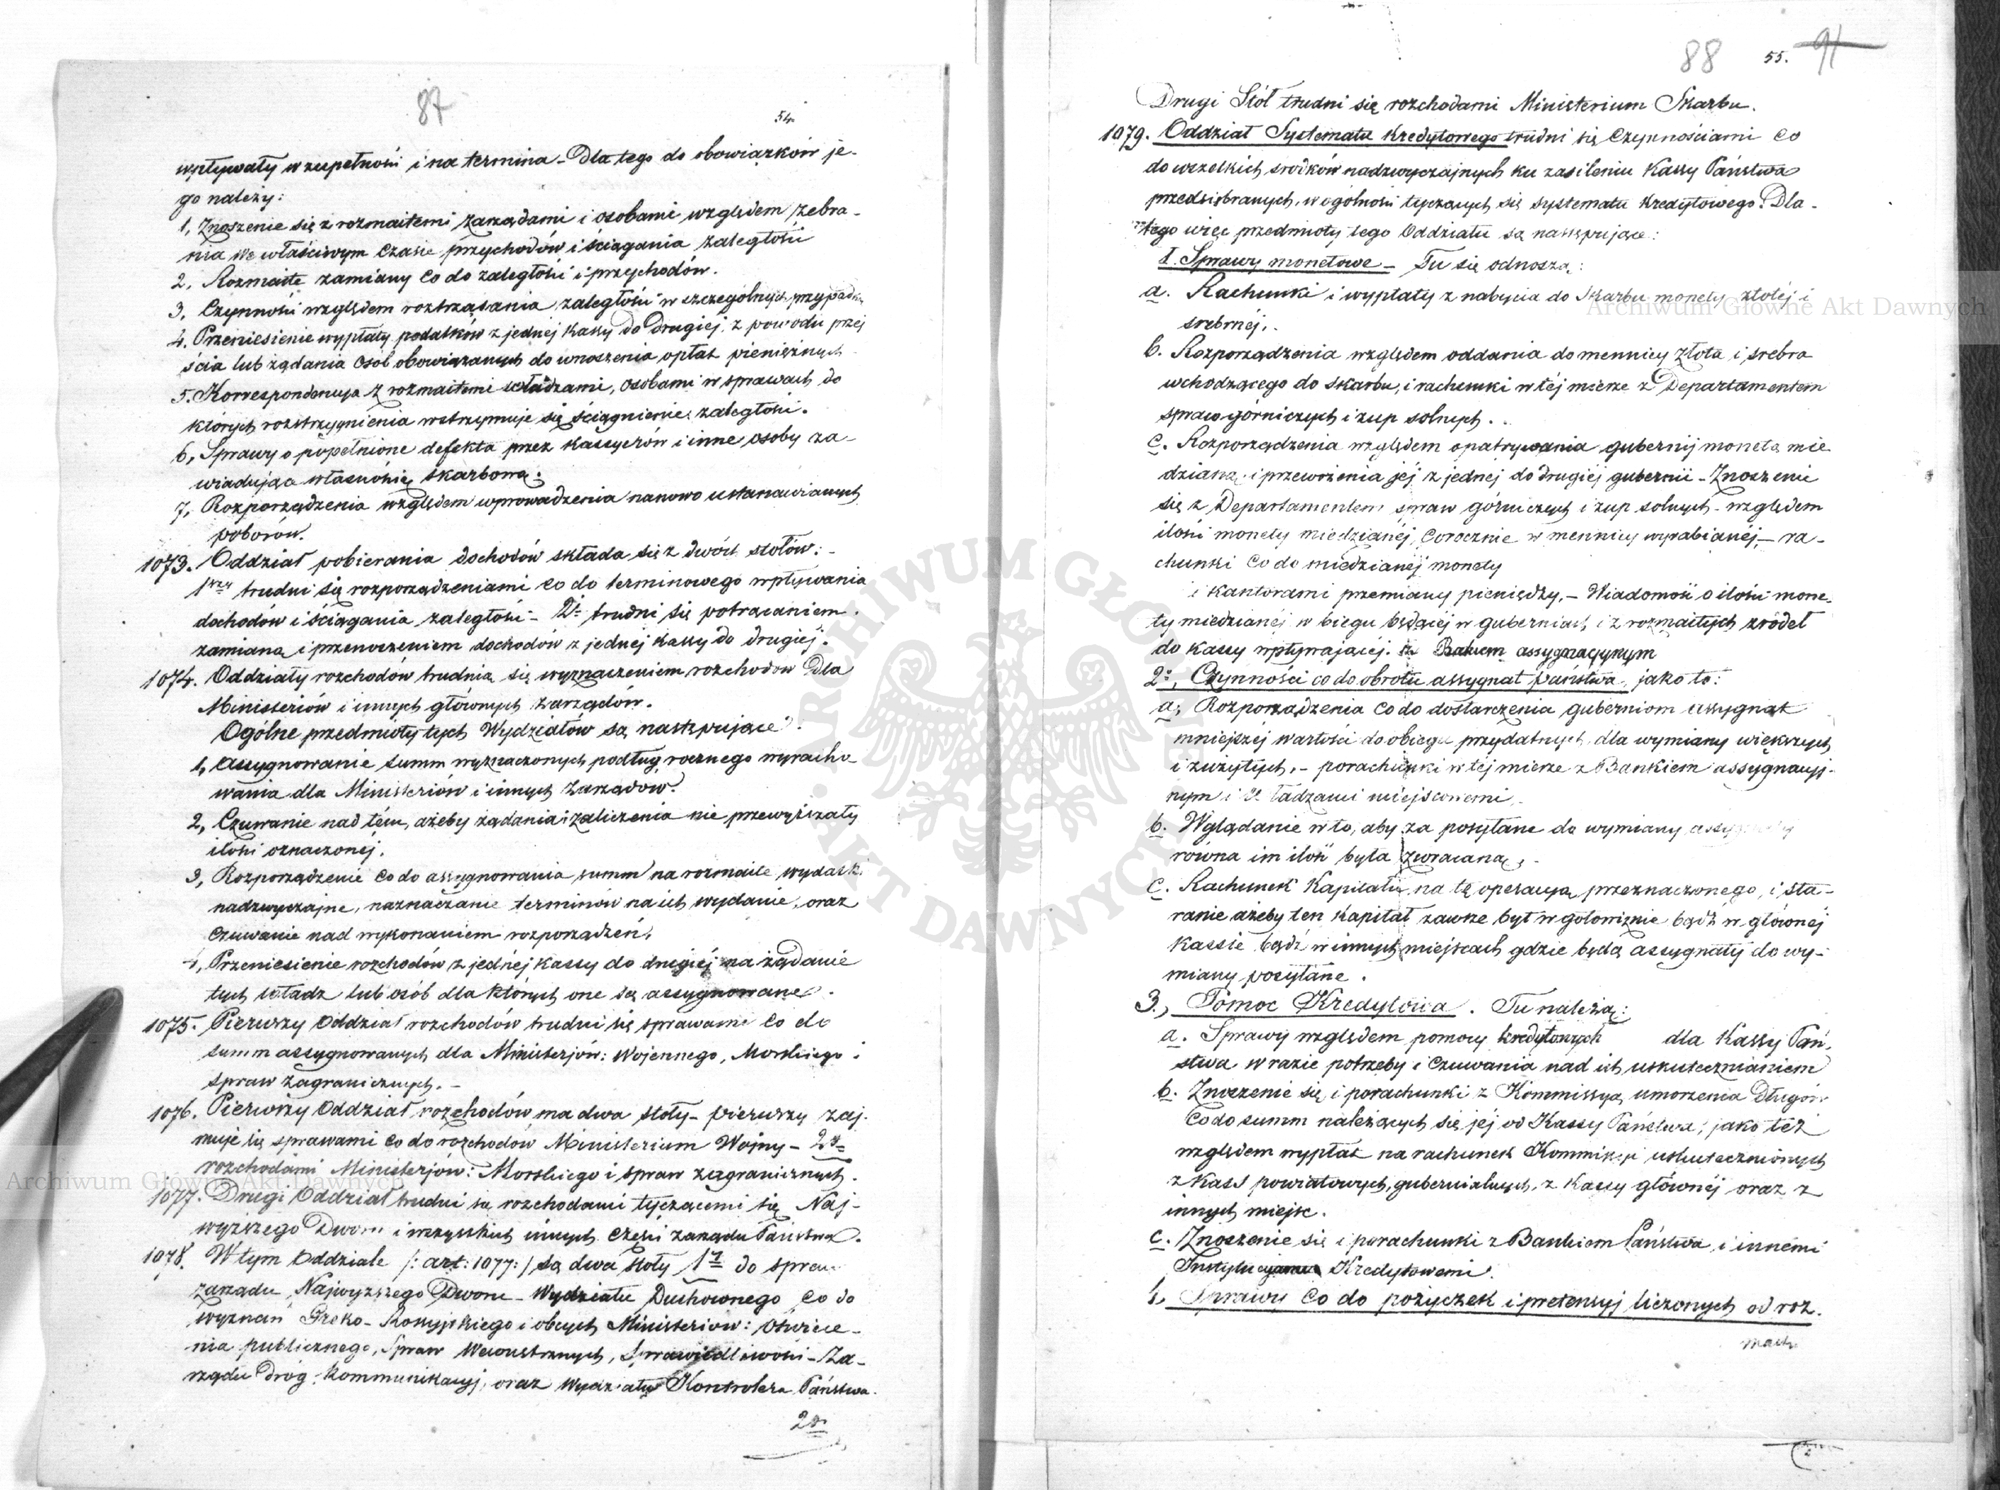 87
54.
wpływały w zupełności i na termina - Dla tego do obowiązków je-
go należy:
1, Znoszenie się z rozmaitemi zarządami i osobami względem zebra-
nia we właściwym czasie przychodów i ściągania zaległości
2, Rozmaite zamiany co do zaległości i przychodów.
3, Czynności względem roztrząsania zaległości w szczególnych przypadk.
4. Przeniesienie wypłaty podatków z jednej Kassy do Drugiej, z powodu przej
ścia lub żądania osób obowiązanych do wnoszenia opłat pieniężnych
5. Korrespondencya z rozmaitemi władzami, osobami w sprawach, do
których rozstrzygnienia wstrzymuje się ściągnienie zaległości.
6, Sprawy o popełnione defekta przez Kassyerów i inne osoby za-
wiadujące własnością skarbową.
7, Rozporządzenia względem wprowadzenia nanowo ustanawianych
poborów.
1073. Oddział pobierania dochodów składa się z dwóch stołów: -
1szy trudni się rozporządzeniami co do terminowego wpływania
dochodów i ściągania zaległości - 2i trudni się potrącaniem
zamianą i przenoszeniem dochodów z jednej Kassy do drugiej.
1074. Oddziały rozchodów trudnią się wyznaczeniem rozchodów Dla
Ministeriów i innych głównych zarządów.
Ogólne przedmioty tych Wydziałów są następujące:
1, Assygnowanie summ wyznaczonych podług rocznego wyracho-
wania dla Ministeriów i innych Zarządów.
2, Czuwanie nad tém, ażeby żądania i zaliczenia nie przewyższały
ilości oznaczonej.
3, Rozporządzenie co do assygnowania summ na rozmaite wydatki
nadzwyczajne, naznaczanie terminów na ich wydanie, oraz
czuwanie nad wykonaniem rozporządzeń.
4, Przeniesienie rozchodów z jednéj Kassy do drugiéj na żądanie
tych władz lub osób dla których one są assygnowane.
1075. Pierwszy Oddział rozchodów trudni się sprawami co do
summ assygnowanych dla Ministerjów: Wojennego, Morskiego i
spraw Zagranicznych. -
1076. Pierwszy Oddział rozchodów ma dwa stoły - pierwszy zaj
muje się sprawami co do rozchodów Ministerium Wojny - 2gi
rozchodami Ministerjów: Morskiego i spraw zagranicznych.
1077. Drugi Oddział trudni się rozchodami tyczącemi się Naj-
wyższego Dworu i wszystkich innych części zarządu Państwa.
1078. W tym Oddziale /: art: 1077:/ są dwa stoły 1szy do spraw
zarządu Najwyższego Dworu - Wydziału Duchownego co do
wyznań Greko-Rossyjskiego i obcych Ministeriów: Oświece-
nia publicznego, Spraw Wewnętrznych, Sprawiedliwości - Za-
rządu Dróg Kommunikacyj, oraz Wydziału Kontrolera Państwa.
2gi
88
55. 91
Drugi Stół trudni się rozchodami Ministerium Skarbu.
1079. Oddział Systematu Kredytowego trudni się Czynnościami co
do wszelkich środków nadzwyczajnych ku zasileniu Kassy Państwa
przedsiębranych, w ogólności tyczących się systematu Kredytowego. Dla-
tego więc przedmioty tego Oddziału są następujące:
1. Sprawy monetowe - Tu się odnoszą:
a. Rachunki i wypłaty z nabycia do Skarbu monety złotéj i
srebrnéj.
b. Rozporządzenia względem oddania do mennicy złota i srebra
wchodzącego do skarbu, i rachunki w téj mierze z Departamentem
spraw górniczych i żup solnych.
c. Rozporządzenia względem opatrywania gubernij monetą mie
dzianą i przewożenia jéj z jednéj do drugiéj gubernii - Znoszenie
się z Departamentem spraw górniczych i żup solnych względem
ilości monety miedzianéj, corocznie w mennicy wyrabianéj, - ra-
chunki co do miedzianéj monety
i Kantorami przemiany pieniędzy, - Wiadomość o ilości mone-
ty miedzianéj w biegu będącéj w guberniach, i z rozmaitych źródeł
do Kassy wpływającéj. Bankiem assygnacyjnym
2o, Czynności co do obrotu assygnat państwa, jako to:
a, Rozporządzenia co do dostarczenia guberniom assygnat
mniejszéj wartości do obiegu przydatnych, dla wymiany większych
i zużytych, - porachunki w téj mierze z Bankiem assygnacyj-
nym i władzami miejscowemi.
b. Wglądanie w to, aby za posyłane do wymiany assygnaty
równa im ilość była zwracaną.
c. Rachunek Kapitału na tę operacyą przeznaczonego, i sta-
ranie ażeby ten Kapitał zawsze był w gotowiznie bądź w głównéj
Kassie bądź w innych miejscach gdzie będą assygnaty do wy-
miany posyłane.
3., Pomoc Kredytowa. Tu należą:
a. Sprawy względem pomocy kredytowych dla Kassy Pań-
stwa w razie potrzeby i czuwania nad ich uskutecznianiem
b. Znoszenie się i porachunki z Kommissyą umorzenia Długów
co do summ należących się jéj od Kassy Państwa, jako też
względem wypłat na rachunek Kommissyi uskutecznionych
z Kass powiatowych, gubernialnych, z Kassy głównéj oraz z
innych miejsc.
c. Znoszenie się i porachunki z Bankiem Państwa i innemi
Instytucyami Kredytowemi.
4, Sprawy co do pożyczek i pretensyj liczonych od roz.
mach
Archiwum Główne Akt Dawnych
Archiwum Główne Akt Dawnych
ARCHIWUM GŁÓWNE AKT DAWNYCH